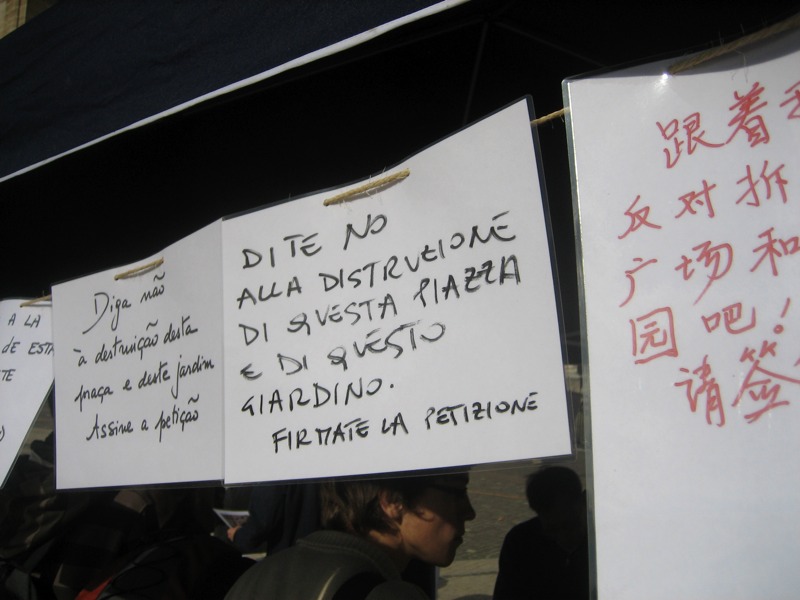 A LA
DE ESTA
TE
Diga não
à destruição desta
praça e deste jardim
Assine a petição
DITE NO
ALLA DISTRUZIONE
DI QUESTA PIAZZA
E DI QUESTO
GIARDINO.
FIRMATE LA PETIZIONE
跟着
反对拆
广场和
园吧!
请签